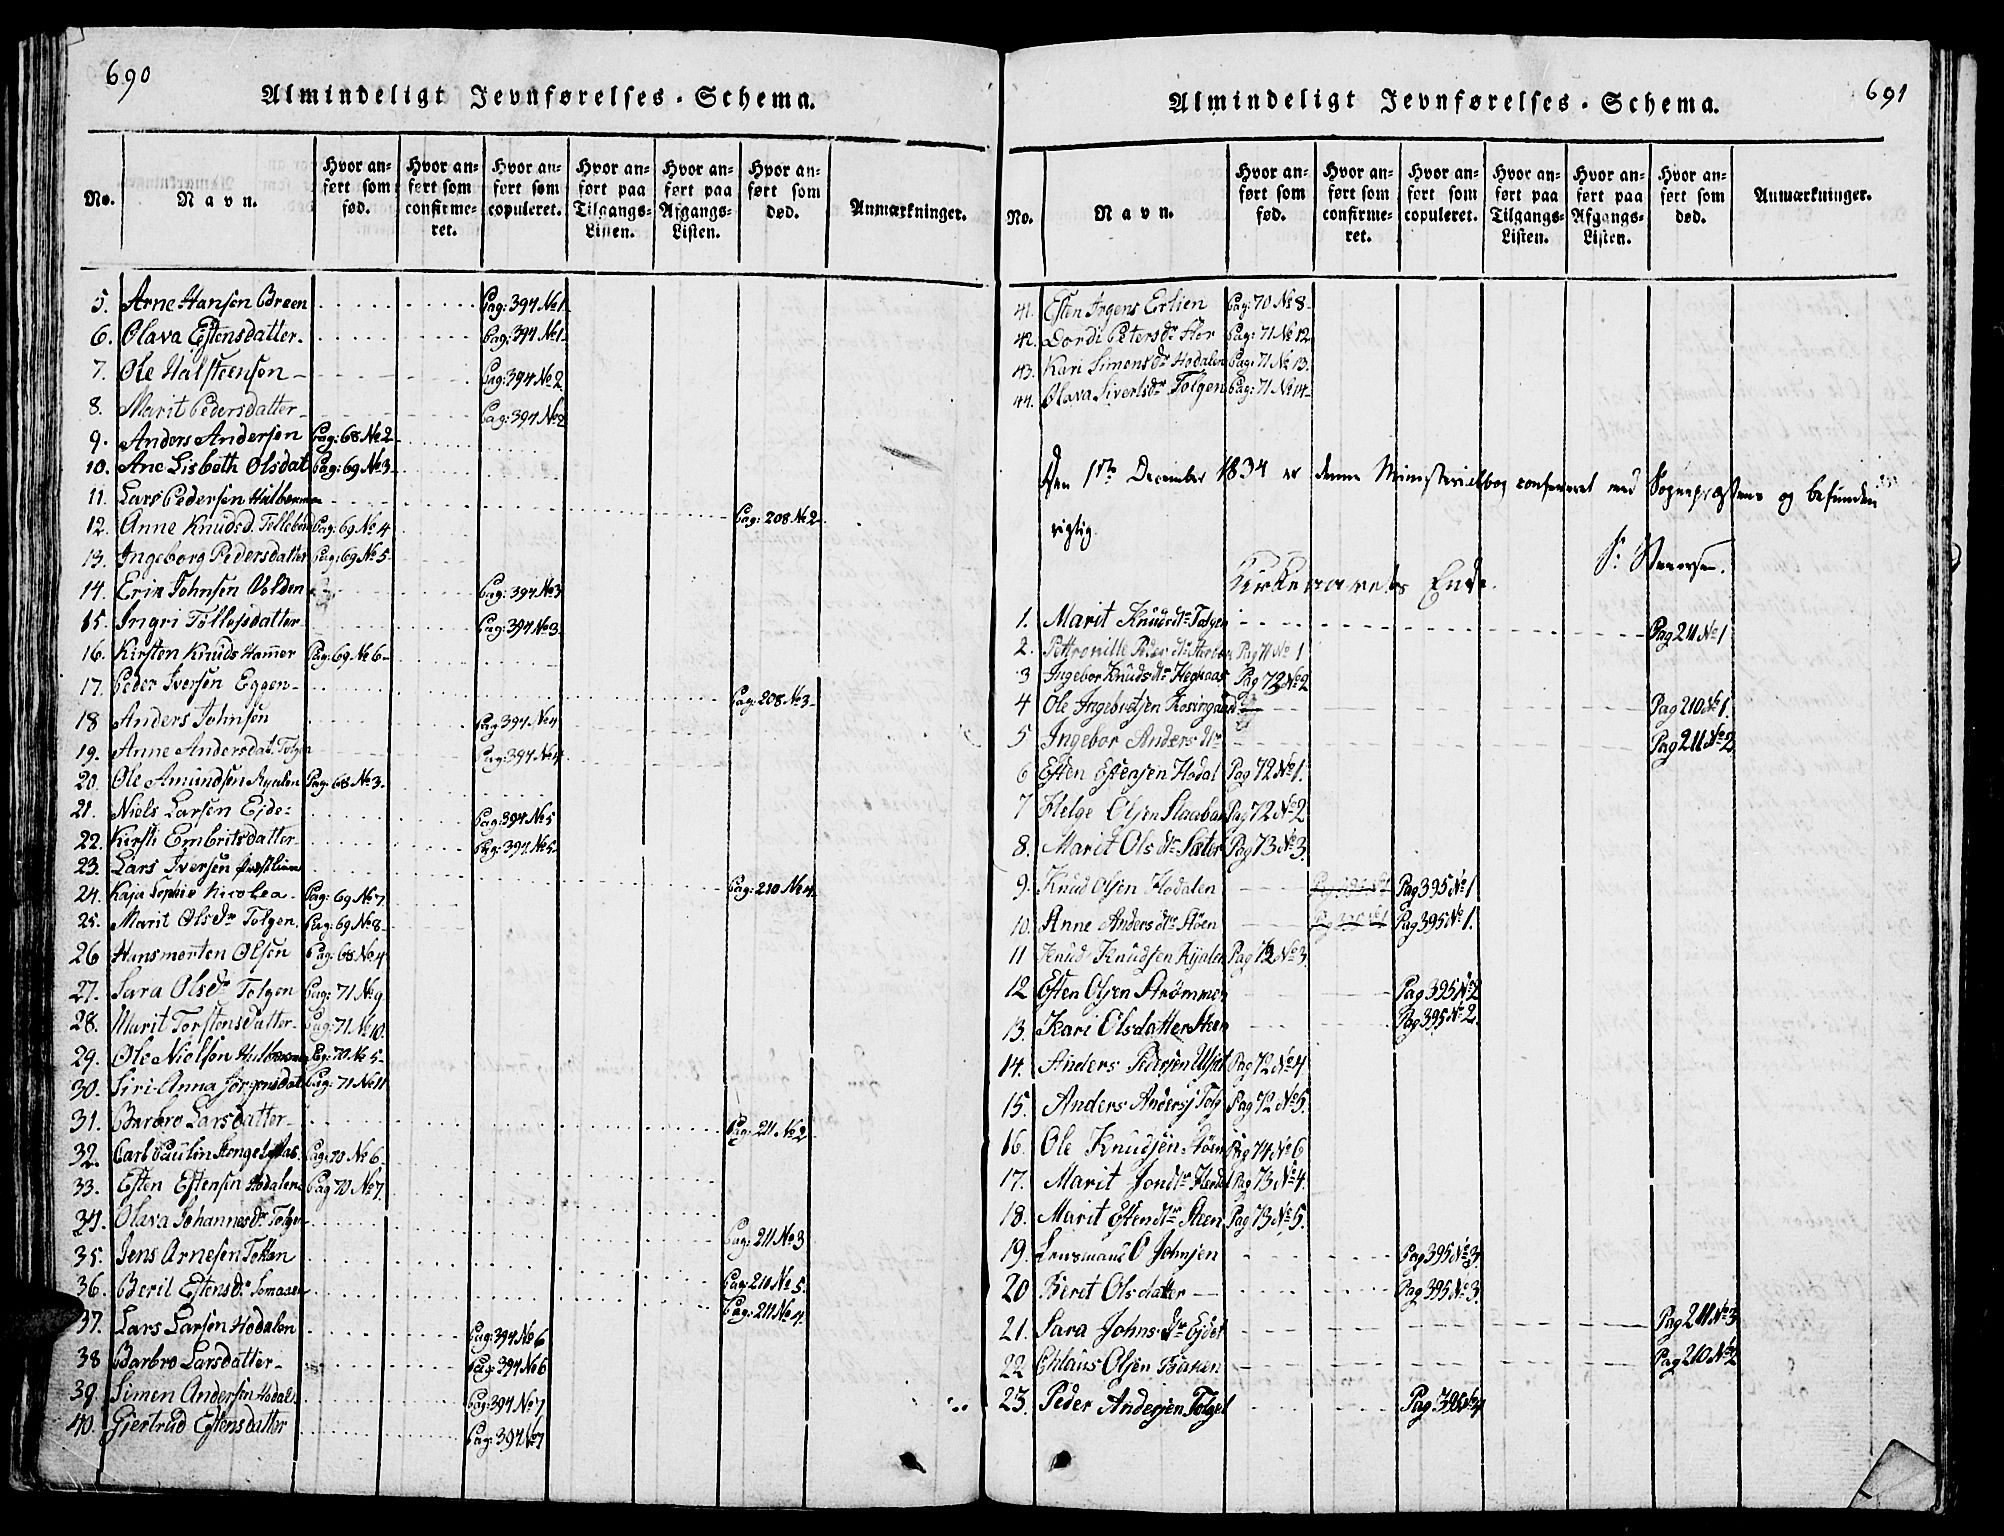 690
Almindeligt Jevnførelses-Schema.
No. Navn. Hvor anført som fød. Hvor anført som confirmeret. Hvor anført som copuleret. Hvor anført paa Tilgangs-Listen. Hvor anført paa Afgangs-Listen. Hvor anført som død. Anmærkninger.
5. Arne Hansen Breen Pag: 394 No 1
6. Olava Estensdatter Pag: 394 No 1
7. Ole Halsteensen Pag: 394 No 2
8. Marit Pedersdatter Pag: 394 No 2
9. Anders Andersen Pag: 68 No 2
10. Ane Lisbeth Olsdat Pag: 69 No 3
11. Lars Pedersen Pag: 208 No 2
12. Anne Knudsd. Pag: 69 No 4
13. Ingeborg Pedersdatter Pag: 69 No 5
14. Erik Johnsen Volden Pag: 394 No 3
15. Ingri Tollefsdatter Pag: 394 No 3
16. Kirsten Knuds Hammer Pag: 69 No 6
17. Peder Iversen Eggen Pag: 208 No 3
18 Anders Johnsen Pag 394 No 4
19. Anne Andersdat. Tolgen Pag: 394 No 4
20. Ole Amundsen Pag: 68 No 3
21. Niels Larsen Eide Pag: 394 No 5
22. Kirsti Embritsdatter Pag: 394 No 5
23. Lars Iversen Pag: 210 No 4
24. Kaja Sophie Nicolea Pag: 69 No 7
25. Marit Olsdr Tolgen Pag: 69 No 8
26 Hansmorten Olsen Pag: 68 No 4
27. Sara Olsdr Tolgen Pag: 71 No 9
28. Marit Torstensdatter Pag: 71 No 10.
29. Ole Nielsen Pag: 70 No 5
30. Siri Anna Jørgensdat Pag: 71 No 11
31. Barbro Larsdatter Pag: 211 No 2
32. Carl Paulin Pag: 70 No 6
33. Esten Estensen Hodalen Pag 70 No 7
34. Olava Johannesdr Tolgen Pag: 211 No 3
35. Jens Arnesen Pag: 210 No 5
36. Beril Estensdr Pag: 211 No 4
37. Lars Larsen Hodalen Pag: 394 No 6
38 Barbro Larsdatter Pag 394 No 6
39. Simen Andersen Hodal Pag: 394 No 7
40. Giertrud Estensdatter Pag: 394 No 7
691
Almindeligt Jevnførelses-Schema.
No. Navn. Hvor anført som fød. Hvor anført som confirmeret. Hvor anført som copuleret. Hvor anført paa Tilgangs-Listen. Hvor anført paa Afgangs-Listen. Hvor anført som død. Anmærkninger.
41. Esten Jrgens Erlien Pag: 70 No 8
42. Dordi Petersdr Pag: 71 No 12
43. Kari Simensdr Hodalen Pag: 71 No 13.
44. Olava Sivertsdr Tolgen Pag: 71 No 14
Den 1ste December 1834 er denne Ministerialbog confereret med Sognepræstens og befunden
rigtig.
Kirkeaarets Ende.
1. Marit Knudsdtr Tolgen Pag 211 No 1
2. Pettronille Peder dtr Pag 71 No 1
3 Ingebor Knudsdtr Pag 72 No 2
4 Ole Ingebretsen Pag 210 No 1.
5 Ingebor Anders dtr Pag 211 No 2
6 Esten Estensen Hodal Pag 72 No 1.
7 Helge Olsen Pag 72 No 2
8. Marit Ols dtr Sæter Pag 73 No 3.
9. Knud Olsen Hodalen Pag 395 No 1
10. Anne Anders dtr Støen Pag 395 No 1.
11 Knud Knudsen Pag 72 No 3.
12 Esten Olsen Strømmen Pag 395 No 2
13. Kari Olsdatter Steen Pag 395 No 2.
14. Anders Pedersen Pag 72 No 4
15. Anders Andersj Tolg Pag 72 No 5.
16. Ole Knudsen Støen Pag 74 No 6
17. Marit Jondtr Pag 73 No 4.
18. Marit Estendtr Steen Pag 73 No 5.
19. Lensmand O Johnsen Pag 395 No 3.
20 Berit Olsdatter Pag 395 No 3.
21. Sara Johns dtr Eidet Pag 211 No 3
22. Ohlaus Olsen Bakken Pag 210 No 2
23. Peder Andersen Tolgel Pag 395 No 4